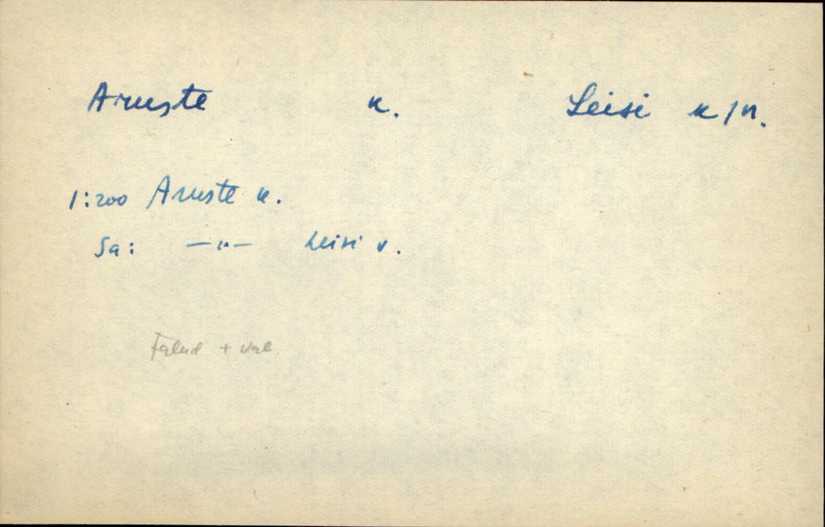 Aruste k. Leisi k/n.
1:200 Aruste k.
Sa: —"— Leisi v.
Talud + val